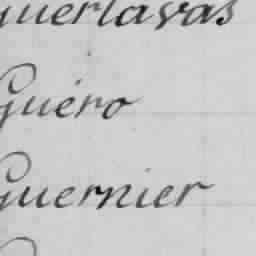 Guerlavas
Guéro
Guernier